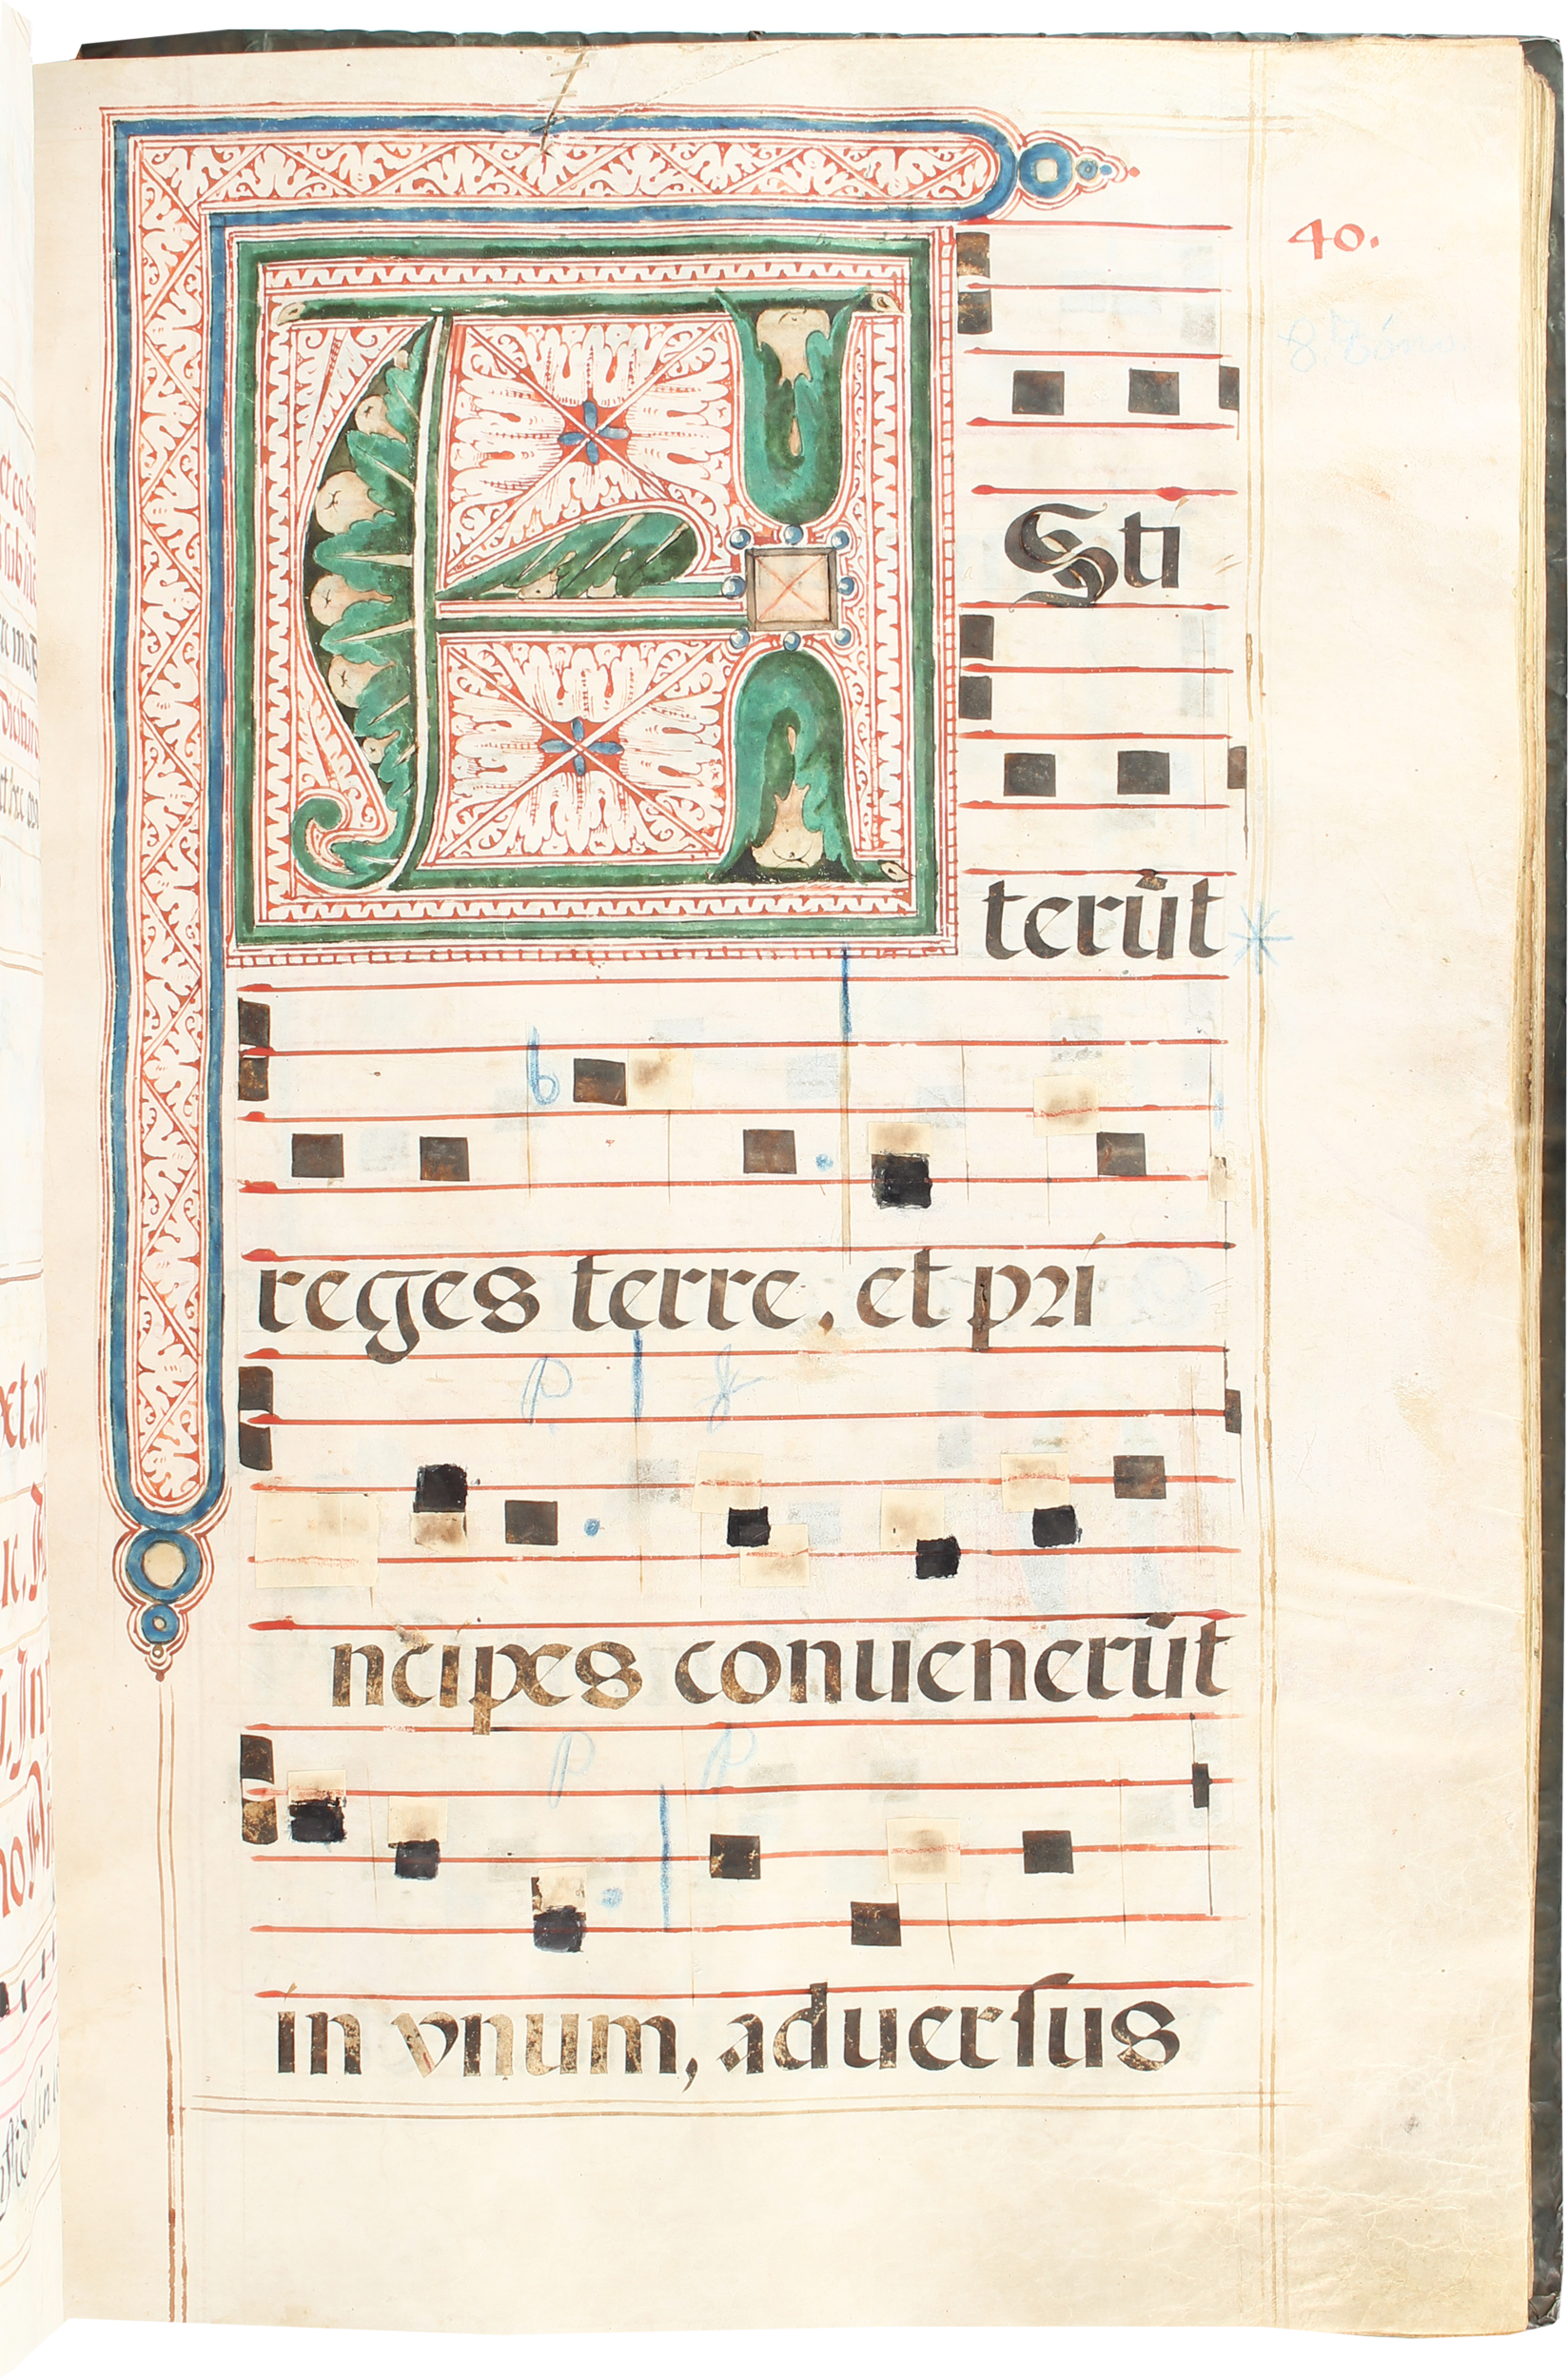 40.
ASti
terūt
reges terre. et pri
ncipes conuenerūt
in vnum, aduerſus